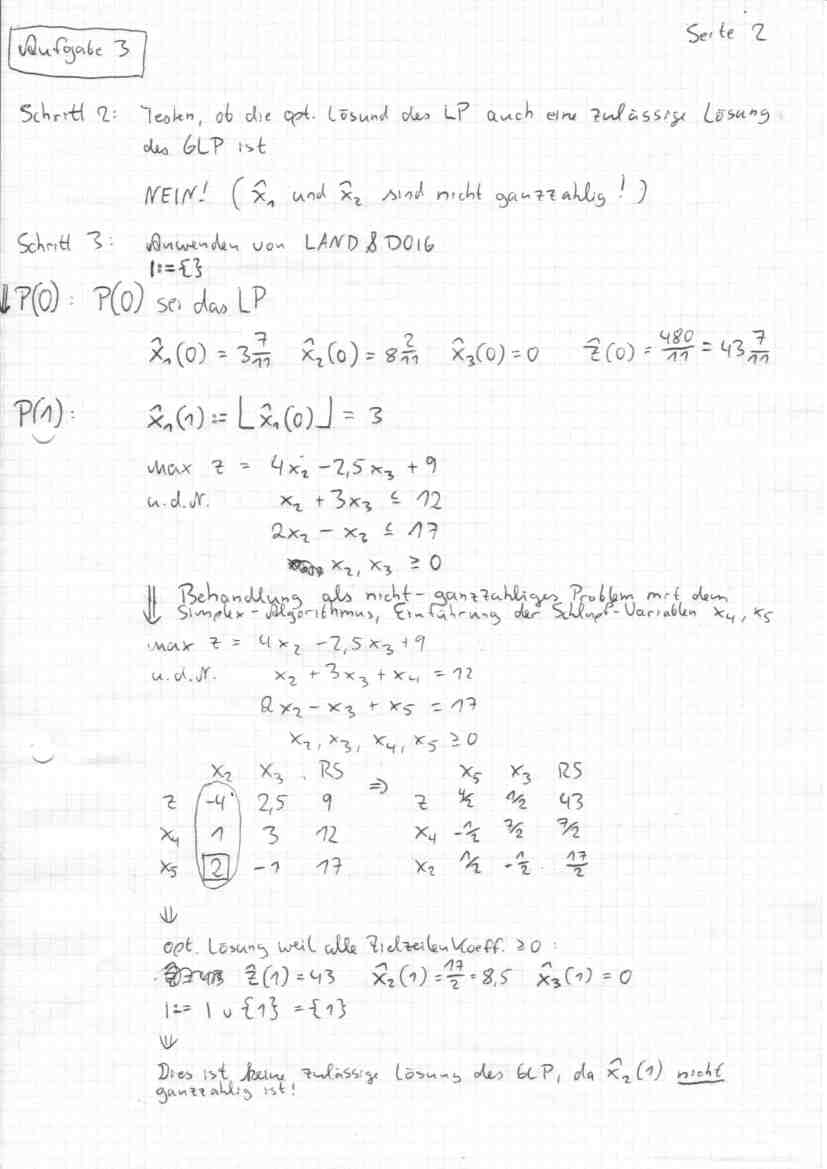 Seite 2
Aufgabe 3
Schritt 2: Testen, ob die opt. Lösund des LP auch eine zulässige Lösung
des GLP ist
NEIN! (x̂₁ und x̂₂ sind nicht ganzzahlig!)
Schritt 3: Anwenden von LAND & DOIG
I:={}
⇓ P(0): P(0) sei das LP
x̂₁(0) = 3 7/11 x̂₂(0) = 8 2/11 x̂₃(0) = 0 ẑ(0) = 480/11 = 43 7/11
P(1): x̂₁(1) := ⌊x̂₁(0)⌋ = 3
max z = 4x₂ - 2,5x₃ + 9
u.d.N. x₂ + 3x₃ ≤ 12
2x₂ - x₂ ≤ 17
x₂, x₃ ≥ 0
⇓ Behandlung als nicht-ganzzahliges Problem mit dem
Simplex-Algorithmus, Einführung der Schlupf-Variablen x₄, x₅
max z = 4x₂ - 2,5x₃ + 9
u.d.N. x₂ + 3x₃ + x₄ = 12
2x₂ - x₃ + x₅ = 17
x₂, x₃, x₄, x₅ ≥ 0
x₂ x₃ RS ⇒ x₅ x₃ RS
z -4 2,5 9 z 4/2 1/2 43
x₄ 1 3 12 x₄ -1/2 7/2 7/2
x₅ 2 -1 17 x₂ 1/2 -1/2 17/2
⇓
opt. Lösung weil alle Zielzeilenkoeff. ≥ 0:
ẑ(1) = 43 x̂₂(1) = 17/2 = 8,5 x̂₃(1) = 0
I:= I ∪ {1} = {1}
⇓
Dies ist keine zulässige Lösung des GLP, da x̂₂(1) nicht
ganzzahlig ist!